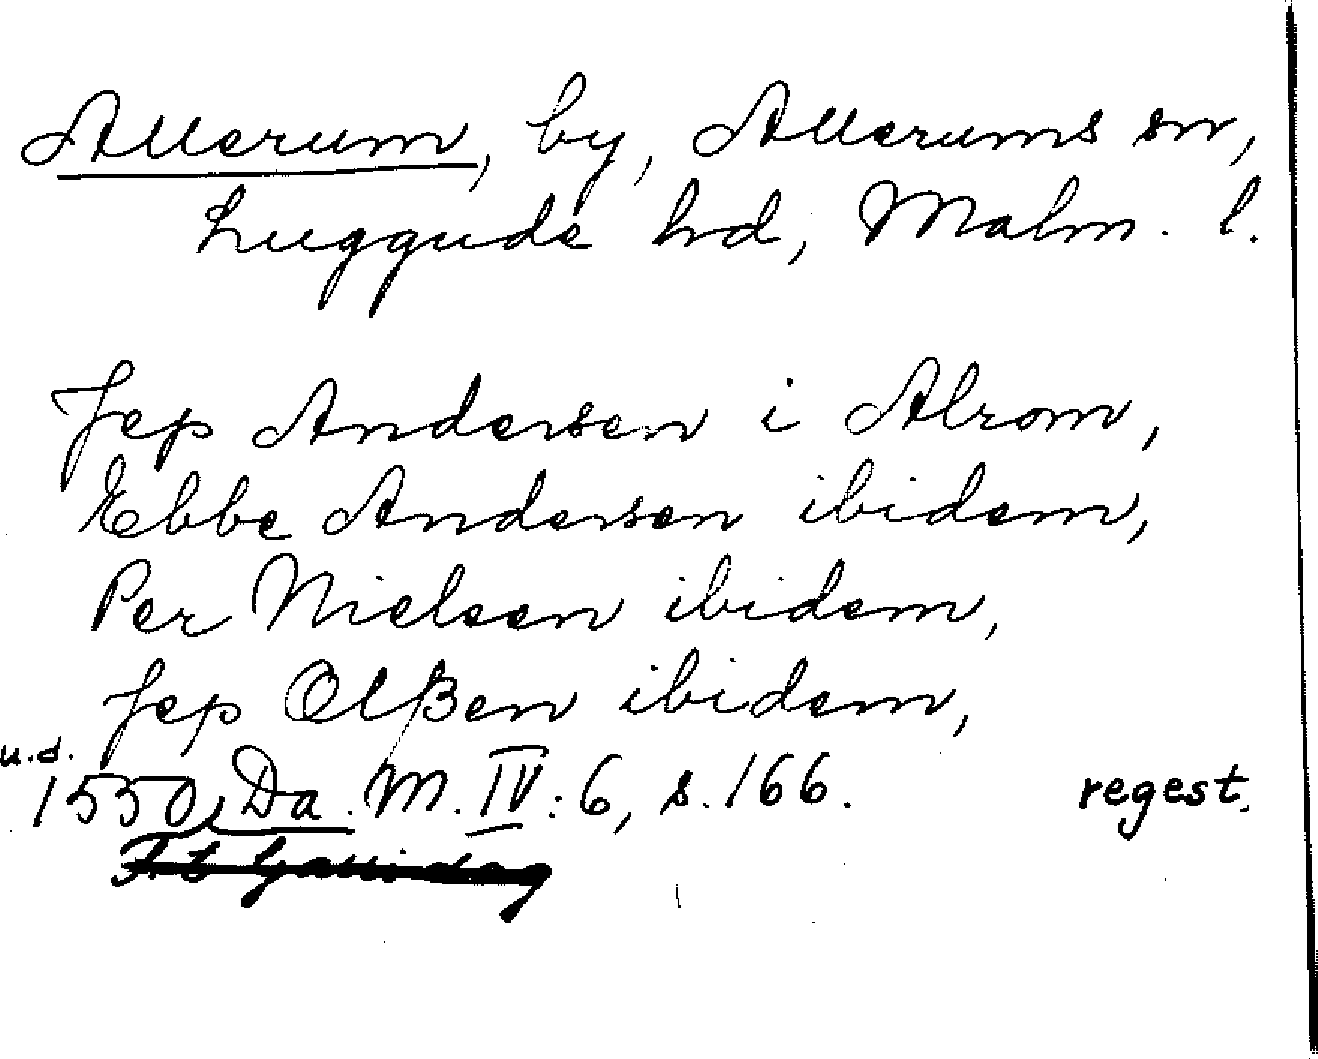 Allerum, by, Allerums sn,
Luggude hd, Malm. l.
Jep Andersen i Alrom,
Ebbe Andersen ibidem,
Per Nielsen ibidem,
Jep Olßen ibidem,
u.d.
1550, Da. M. IV: 6, s. 166. regest.